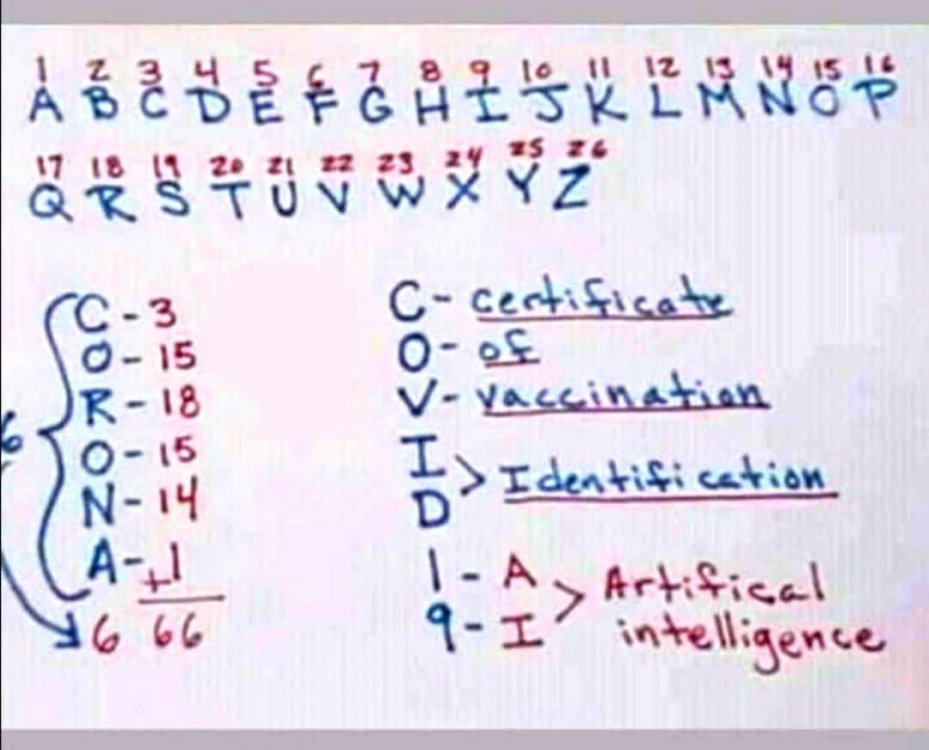 1 2 3 4 5 6 7 8 9 10 11 12 13 14 15 16
A B C D E F G H I J K L M N O P
17 18 19 20 21 22 23 24 25 26
Q R S T U V W X Y Z
C - 3
O - 15
R - 18
O - 15
N - 14
A - +1
6 66
6
C - certificate
O - of
V - vaccination
I D > Identification
1 - A
9 - I
> Artifical intelligence